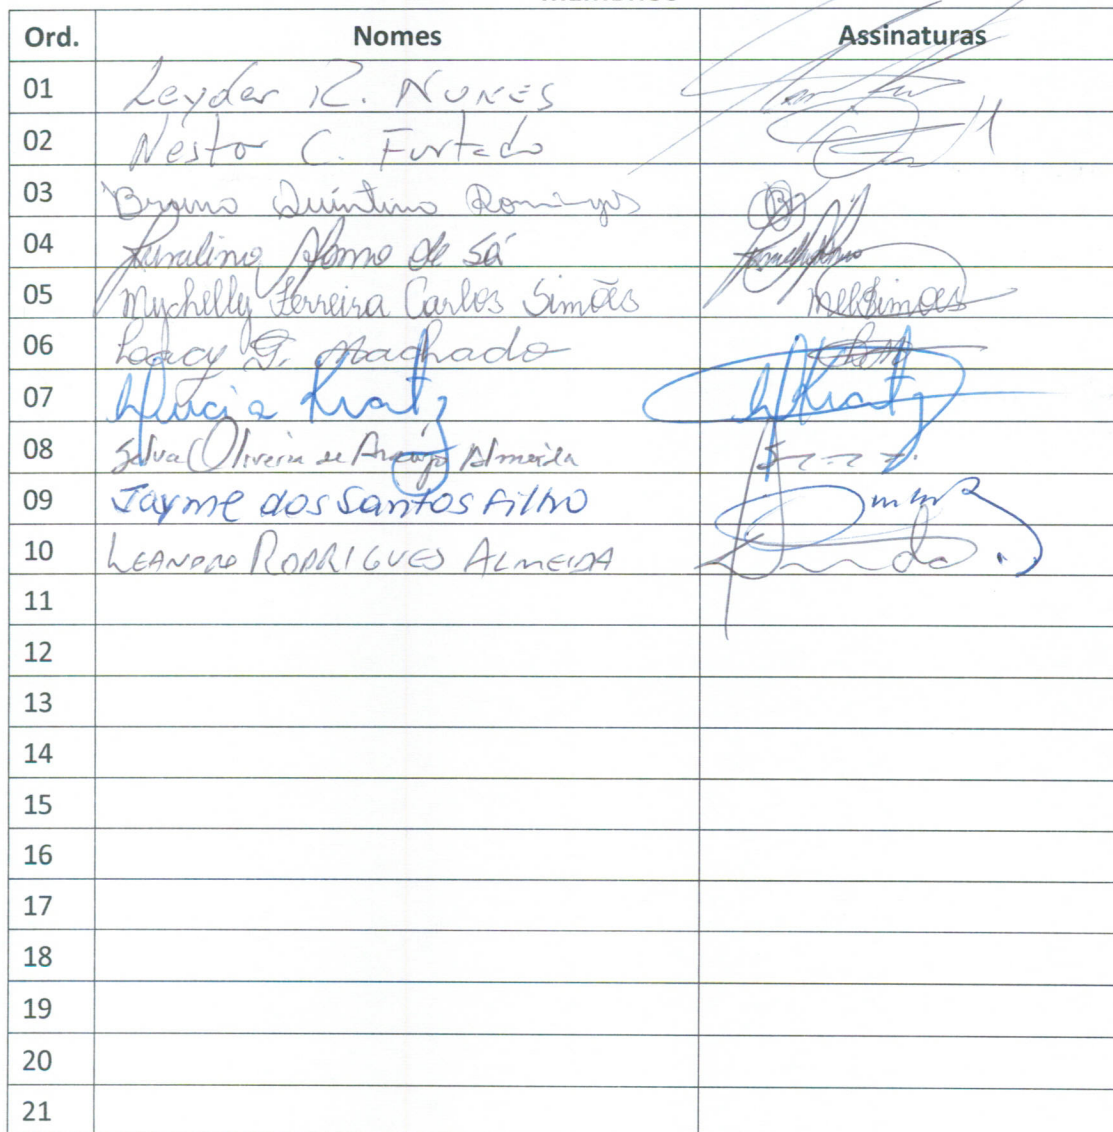 Ord. Nomes Assinaturas
01 Leyder R. NUNES
02 Nestor C. Furtado
03 Bruno Quintino Domingos
04 Afonso de Sá
05 Mychelly Ferreira Carlos Simões
06 G. Machado
07 Lúcia Kratz
08 Selva Oliveira de Araújo Almeida
09 Jayme dos Santos Filho
10 LEANDRO RODRIGUES ALMEIDA
11
12
13
14
15
16
17
18
19
20
21